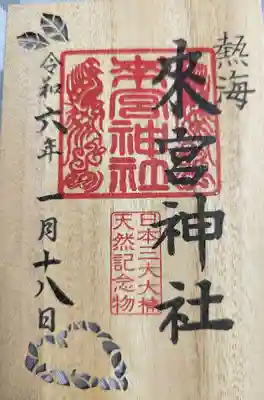 熱海
來宮神社
來宮神社
日本三大大楠
天然記念物
令和六年 一月十八日